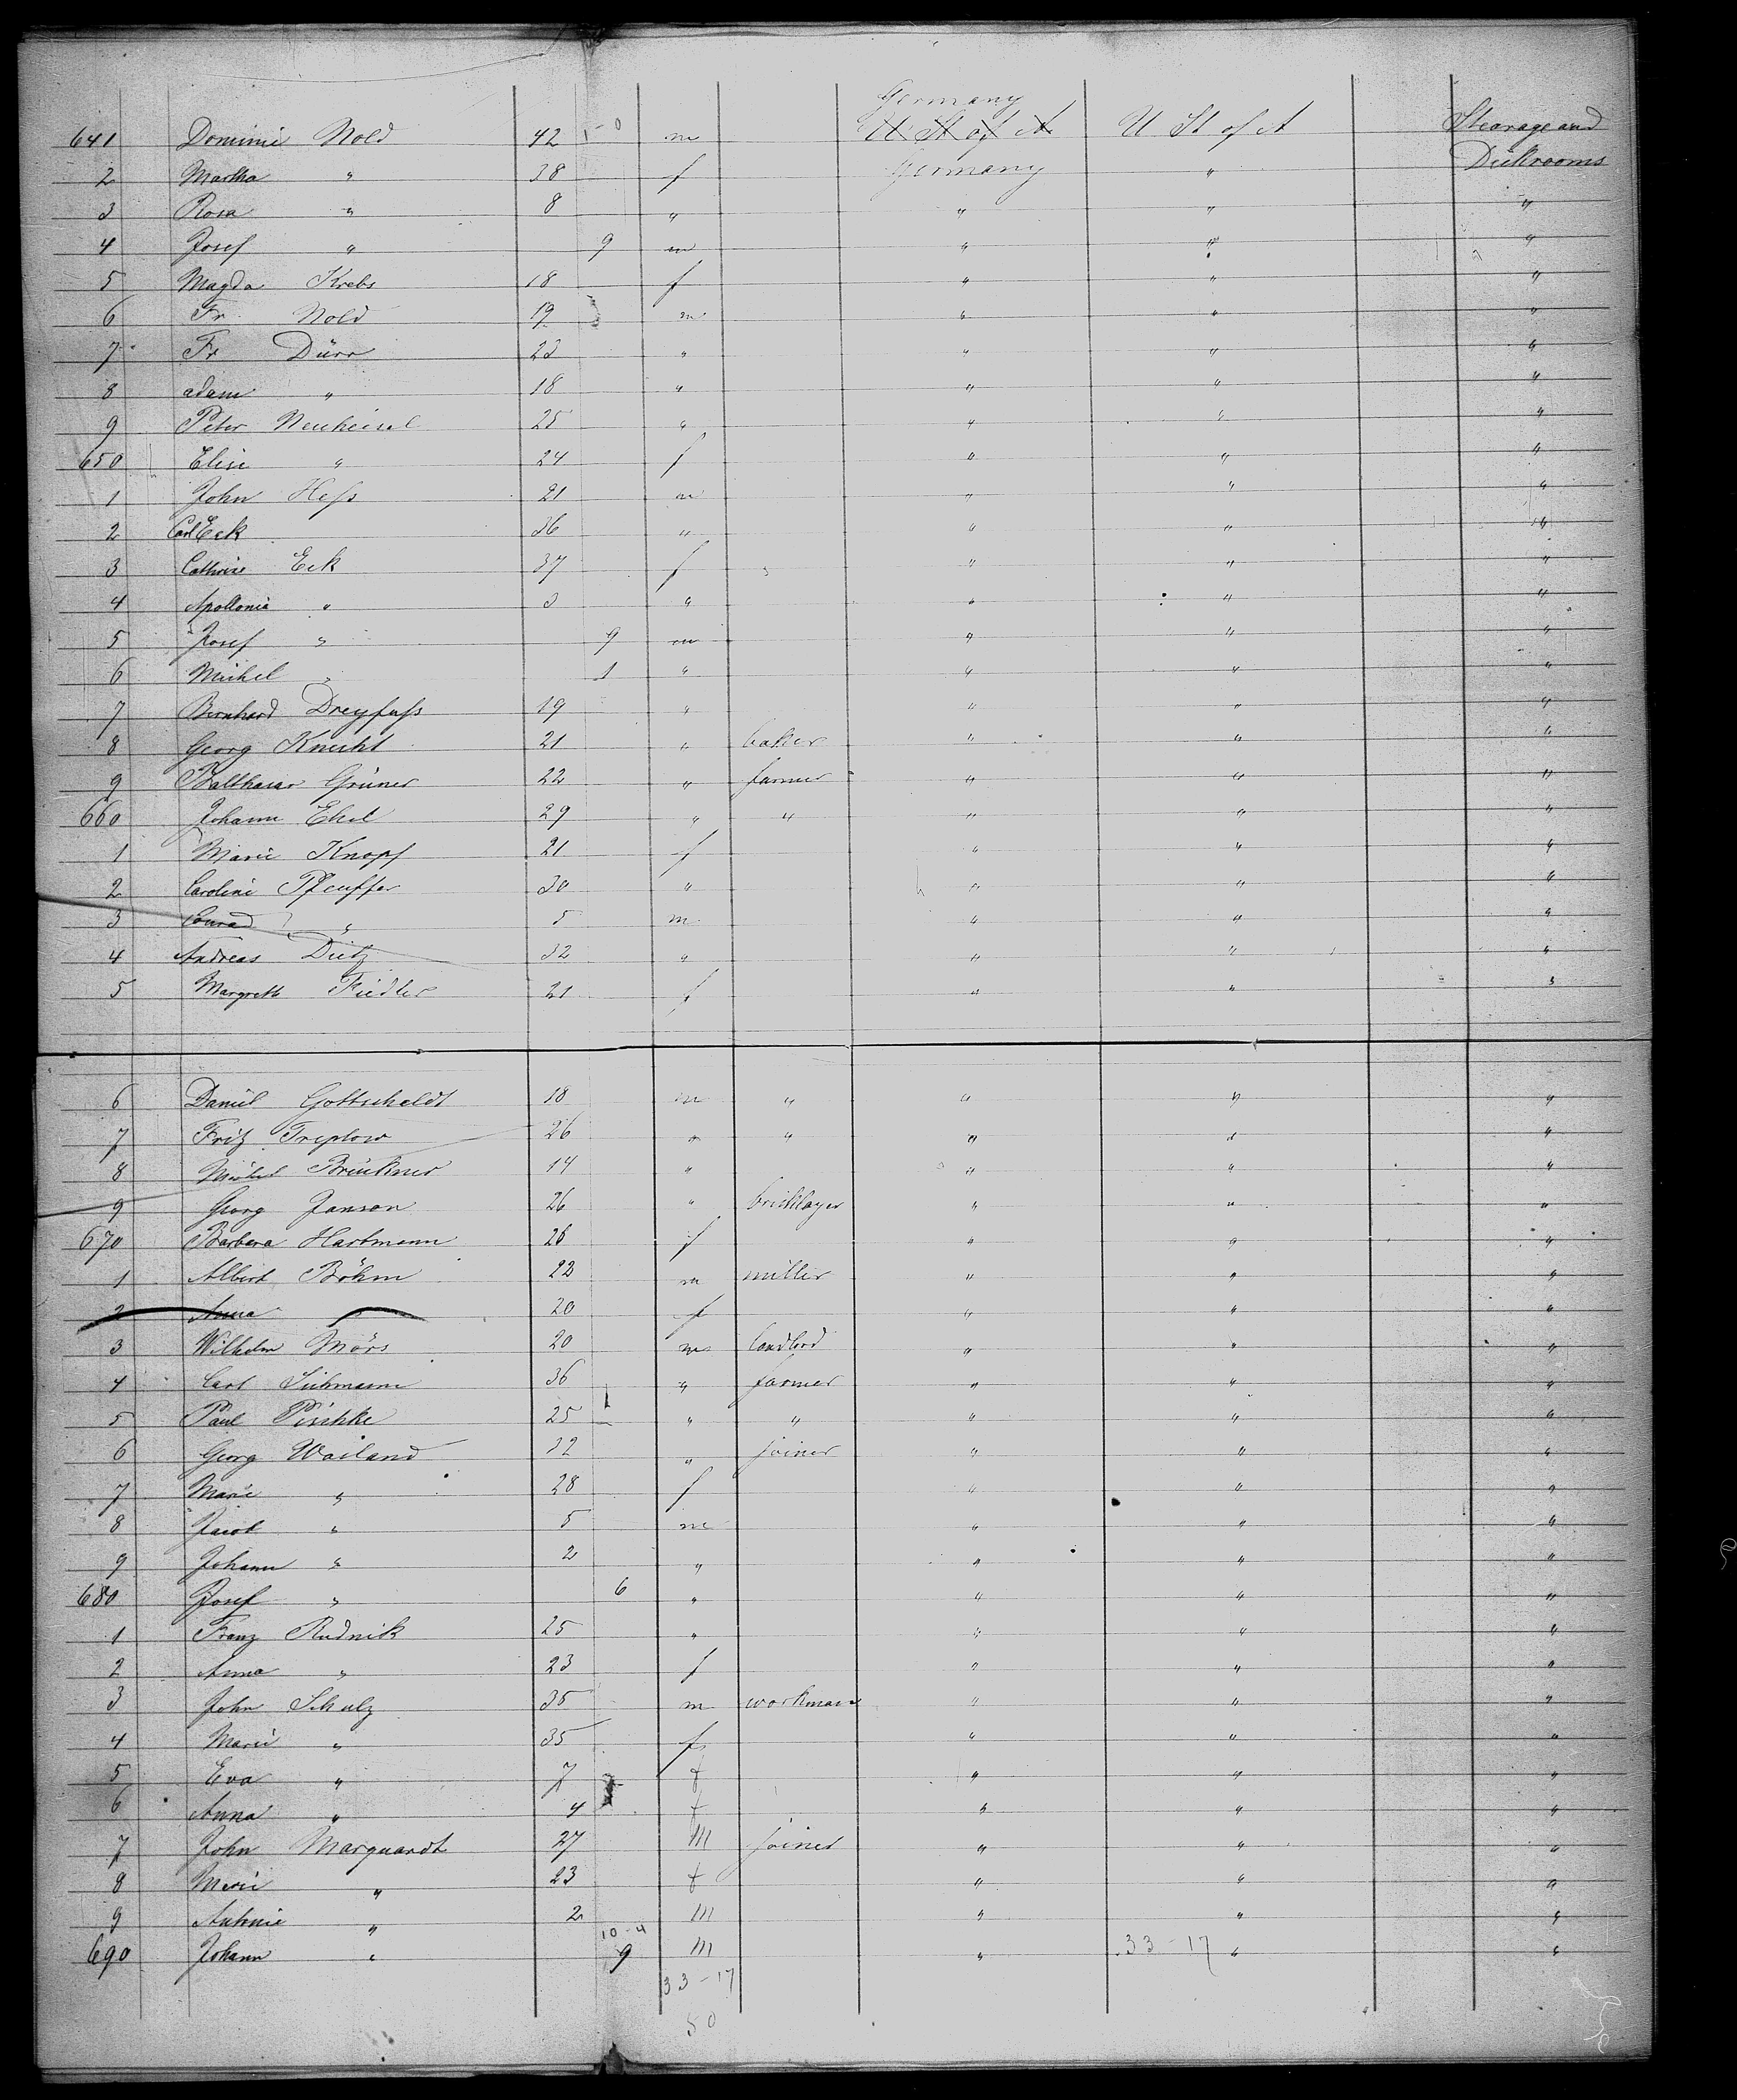 Germany
641 Dominic Nold 42 1-0 m U St of A U St of A Stearage and
2 Martha " 38 f Germany " Dickrooms
3 Rosa " 8 " " " "
4 Josef " 9 m " " "
5 Magda Krebs 18 f " " "
6 Fr Nold 19 m " " "
7 Fr Dürr 23 " " " "
8 adam " 18 " " " "
9 Peter Neuheisel 25 " " " "
650 Elise " 24 f " " "
1 John Heſs 21 m " " "
2 Carl Eck 36 " " " "
3 Cathrine Eck 37 f " " "
4 Apollonia " 3 " " " "
5 Josef " 9 m " " "
6 Michel " 1 " " " "
7 Bernhard Dreyfuſs 19 " " " "
8 Georg Knecht 21 " baker " " "
9 Balthasar Grüner 22 " farmer " " "
660 Johann Ekel 29 " " " " "
1 Marie Knopf 21 f " " "
2 Caroline Pfeuffer 30 " " " "
3 Conrad " 5 m " " "
4 Andreas Dietz 32 " " " "
5 Margreth Fiedler 21 f " " "
6 Daniel Gottscheldt 18 m " " " "
7 Fritz Treptow 26 " " " " "
8 Michel Brückner 14 " " " "
9 Georg Janson 26 " bricklayer " " "
670 Barbera Hartmann 26 f " " "
1 Albert Böhm 22 m miller " " "
2 Anna " 20 f " " "
3 Wilhelm Mörs 20 m landlord " " "
4 Carl Liebmann 36 " farmer " " "
5 Paul Pischke 25 " " " " "
6 Georg Wailand 32 " joiner " " "
7 Marie " 28 f " " "
8 Jacob " 5 m " " "
9 Johann " 2 " " " "
680 Josef " 6 " " " "
1 Franz Rudnik 25 " " " "
2 Anna " 23 f " " "
3 John Schulz 35 m workman " " "
4 Marie " 35 f " " "
5 Eva " 7 f " " "
6 Anna " 4 f " " "
7 John Marquardt 27 m joiner " " "
8 Marie " 23 f " " "
9 " 2 m " " "
10-4
690 Johann " 9 m " 33-17 " "
33-17
50